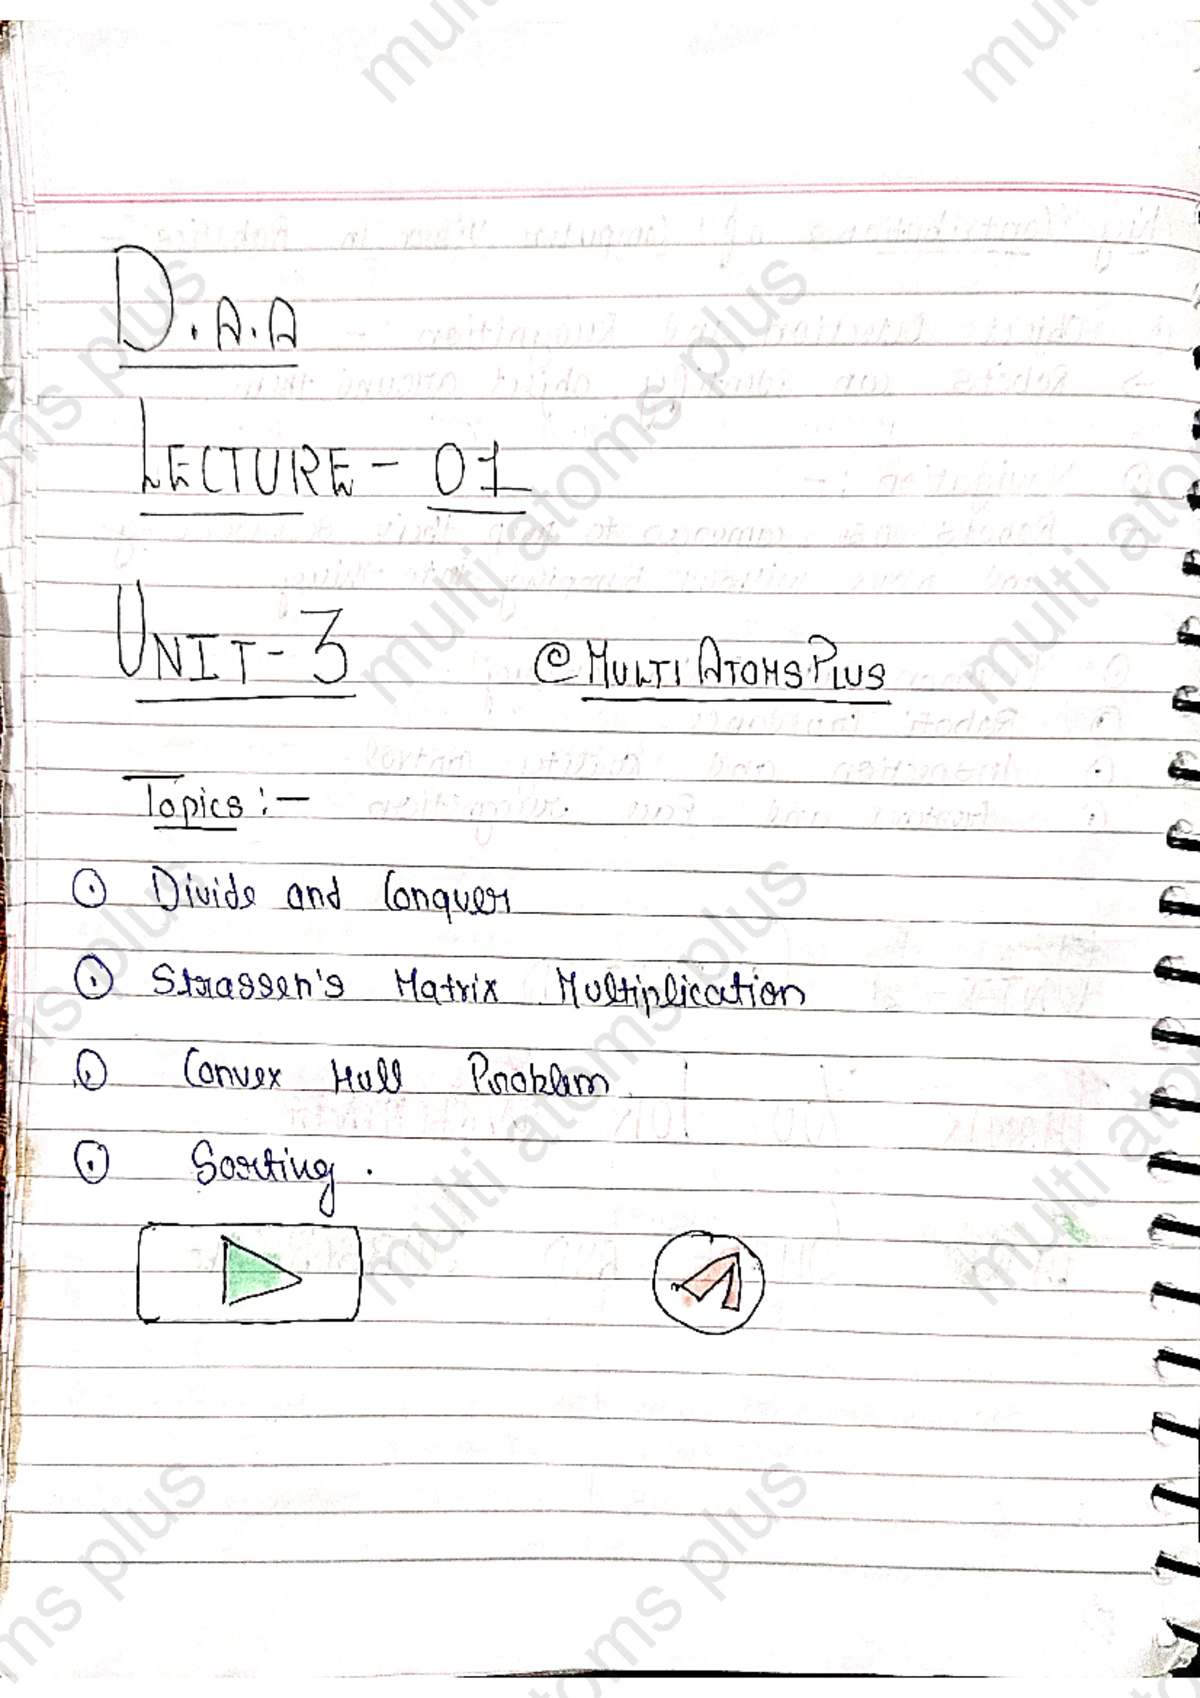 D.A.A
LECTURE - 01
UNIT - 3
@MULTI ATOMS PLUS
Topics :-
Divide and Conquer
Strassen's Matrix Multiplication
Convex Hull Problem
Sorting.
multi atoms plus